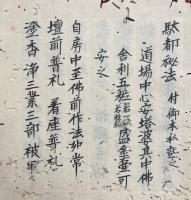 馱都秘法 付御本私記之
道場中心安塔婆其中佛
舍利五粒盛金壺可
安之
自房中至佛前作法如常
壇前普礼 着座普礼
塗香 淨三業三部 被甲